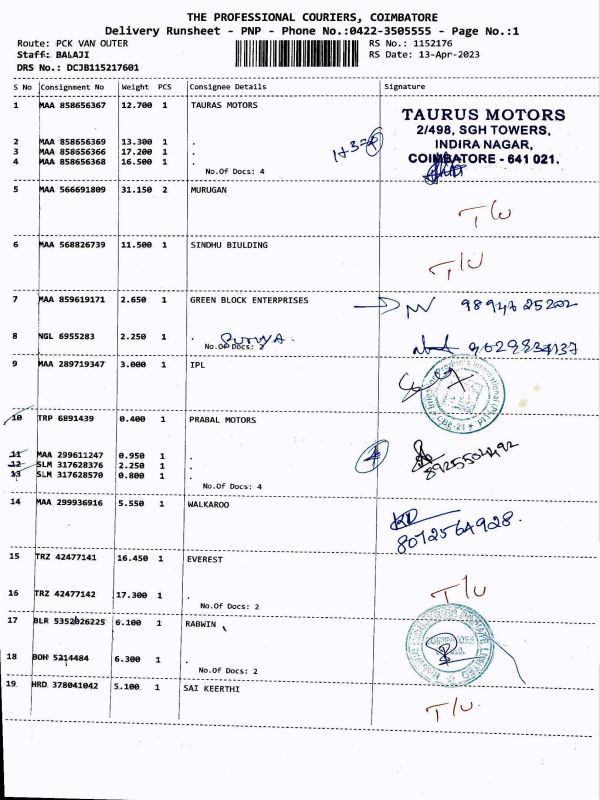 THE PROFESSIONAL COURIERS, COIMBATORE
Delivery Runsheet - PNP - Phone No.:0422-3505555 - Page No.:1
Route: PCK VAN OUTER RS No.: 1152176
Staff: BALAJI RS Date: 13-Apr-2023
DRS No.: DCJB115217601
S No Consignment No Weight PCS Consignee Details Signature
1 MAA 858656367 12.700 1 TAURAS MOTORS
TAURUS MOTORS
2/498, SGH TOWERS,
INDIRA NAGAR,
COIMBATORE - 641 021.
2 MAA 858656369 13.300 1 .
3 MAA 858656366 17.200 1 .
4 MAA 858656368 16.500 1 .
1+3=
No.Of Docs: 4
5 MAA 566691809 31.150 2 MURUGAN
T/U
6 MAA 568826739 11.500 1 SINDHU BIULDING
T/U
7 MAA 859619171 2.650 1 GREEN BLOCK ENTERPRISES
8 NGL 6955283 2.250 1 .
No.Of Docs: 2
9629834137
9 MAA 289719347 3.000 1 IPL
10 TRP 6891439 0.400 1 PRABAL MOTORS
11 MAA 299611247 0.950 1 .
12 SLM 317628376 2.250 1 .
13 SLM 317628570 0.800 1 .
No.Of Docs: 4
14 MAA 299936916 5.550 1 WALKAROO
8072564928.
15 TRZ 42477141 16.450 1 EVEREST
16 TRZ 42477142 17.300 1 .
No.Of Docs: 2
T/U
17 BLR 5352026225 6.100 1 RABWIN
18 BOH 5214484 6.300 1 .
No.Of Docs: 2
19 HRD 378041042 5.100 1 SAI KEERTHI
T/U